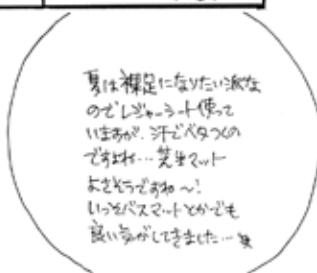 夏は裸足になりたい派な
のでレジャーシート使って
いますが、汗でベタつくの
ですよね…芝生マット
よさそうですね〜!
いっそバスマットとかでも
良い気がしてきました…笑